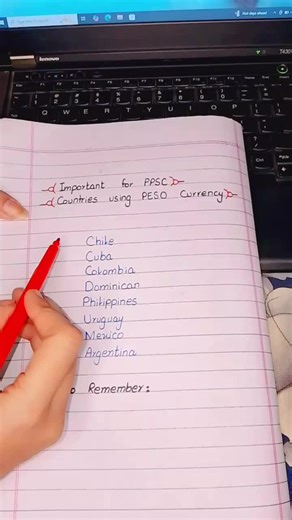 Important for PPSC
Countries using PESO Currency
Chile
Cuba
Colombia
Dominican
Philippines
Uruguay
Mexico
Argentina
o Remember:
lenovo